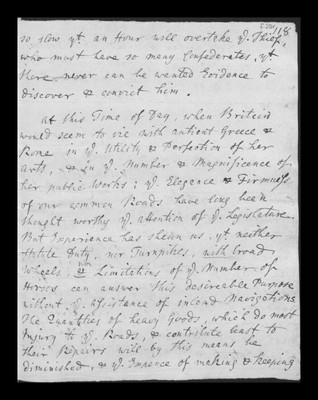 118
so slow yt. an Hour will overtake ye. Thief,
who must have so many Confederates, yt.
there never can be wanted Evidence to
discover & convict him.
At this Time of Day, when Britain
would seem to vie with antient Greece &
Rome in ye. Utility & Perfection of her
Arts, & in ye. Number & Magnificence of
her public Works; ye. Elegance & Firmness
of our common Roads have long been
thought worthy ye. attention of ye. Legislature.
But Experience has shewn us, yt. neither
Statute Duty, nor Turnpikes, with broad
Wheels, & Limitations of ye. Number of
Horses can answer this desireable Purpose
without ye. Assistance of inland Navigations.
The Quantities of heavy Goods, which do most
Injury to ye. Roads, & contribute least to
their Repairs will by this means be
diminished, & ye. Expence of making & keeping